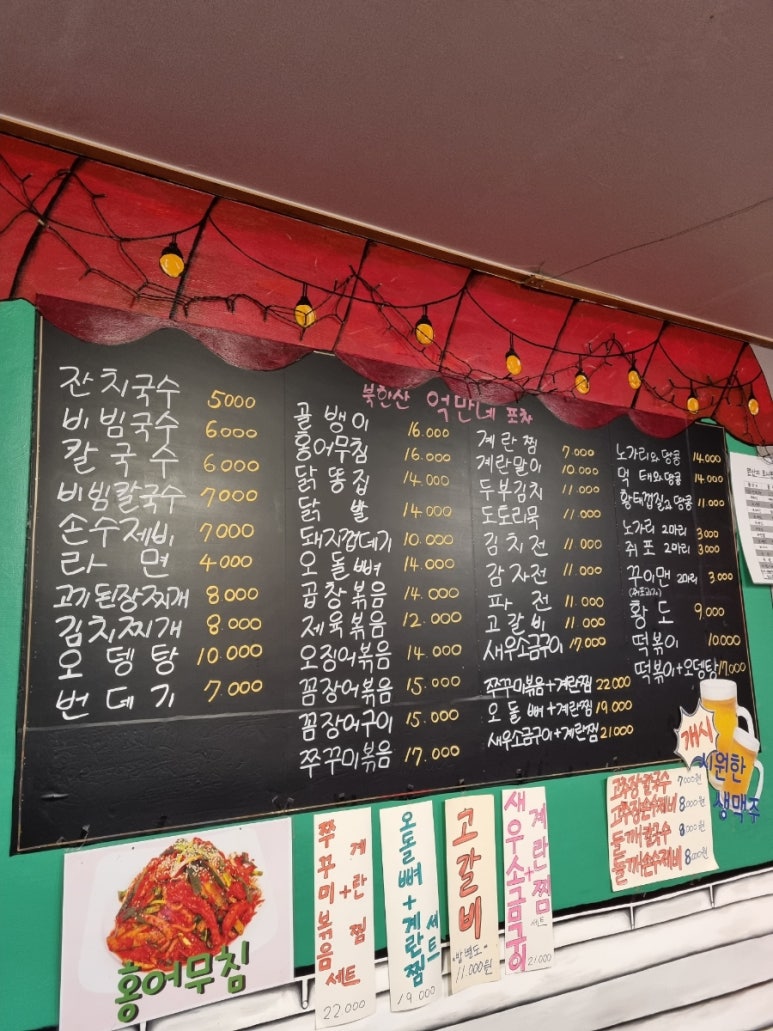 북한산 억만네 포차
잔치국수 5000
비빔국수 6.000
칼국수 6.000
비빔칼국수 7000
손수제비 7000
라면 4000
고기된장찌개 8000
김치찌개 8.000
오뎅탕 10.000
번데기 7.000
골뱅이 16.000
홍어무침 16.000
닭똥집 14.000
닭발 14.000
돼지껍데기 10.000
오돌뼈 14.000
곱창볶음 14.000
제육볶음 12.000
오징어볶음 14.000
꼼장어볶음 15.000
꼼장어구이 15.000
쭈꾸미볶음 17.000
계란찜 7.000
계란말이 10.000
두부김치 11.000
도토리묵 11.000
김치전 11.000
감자전 11.000
파전 11.000
고갈비 11.000
새우소금구이 17.000
쭈꾸미볶음+계란찜 22000
오돌뼈+계란찜 19,000
새우소금구이+계란찜 21000
노가리와 땅콩 14.000
먹태와땅콩 14.000
황태껍질과 땅콩 11.000
노가리 2마리 3000
쥐포 2마리 3000
꾸이맨 2마리 3.000
황도 9.000
떡볶이 10.000
떡볶이+오뎅탕 17.000
개시
시원한
생맥주
고추장칼국수 7000원
고추장손수제비 8,000원
들깨칼국수 8000원
들깨손수제비 8,000원
홍어무침
쭈꾸미볶음+계란찜 세트
22000
오돌뼈+계란찜 세트
19,000
고갈비
"밥별도"
11.000원
새우소금구이+계란찜 세트
21000